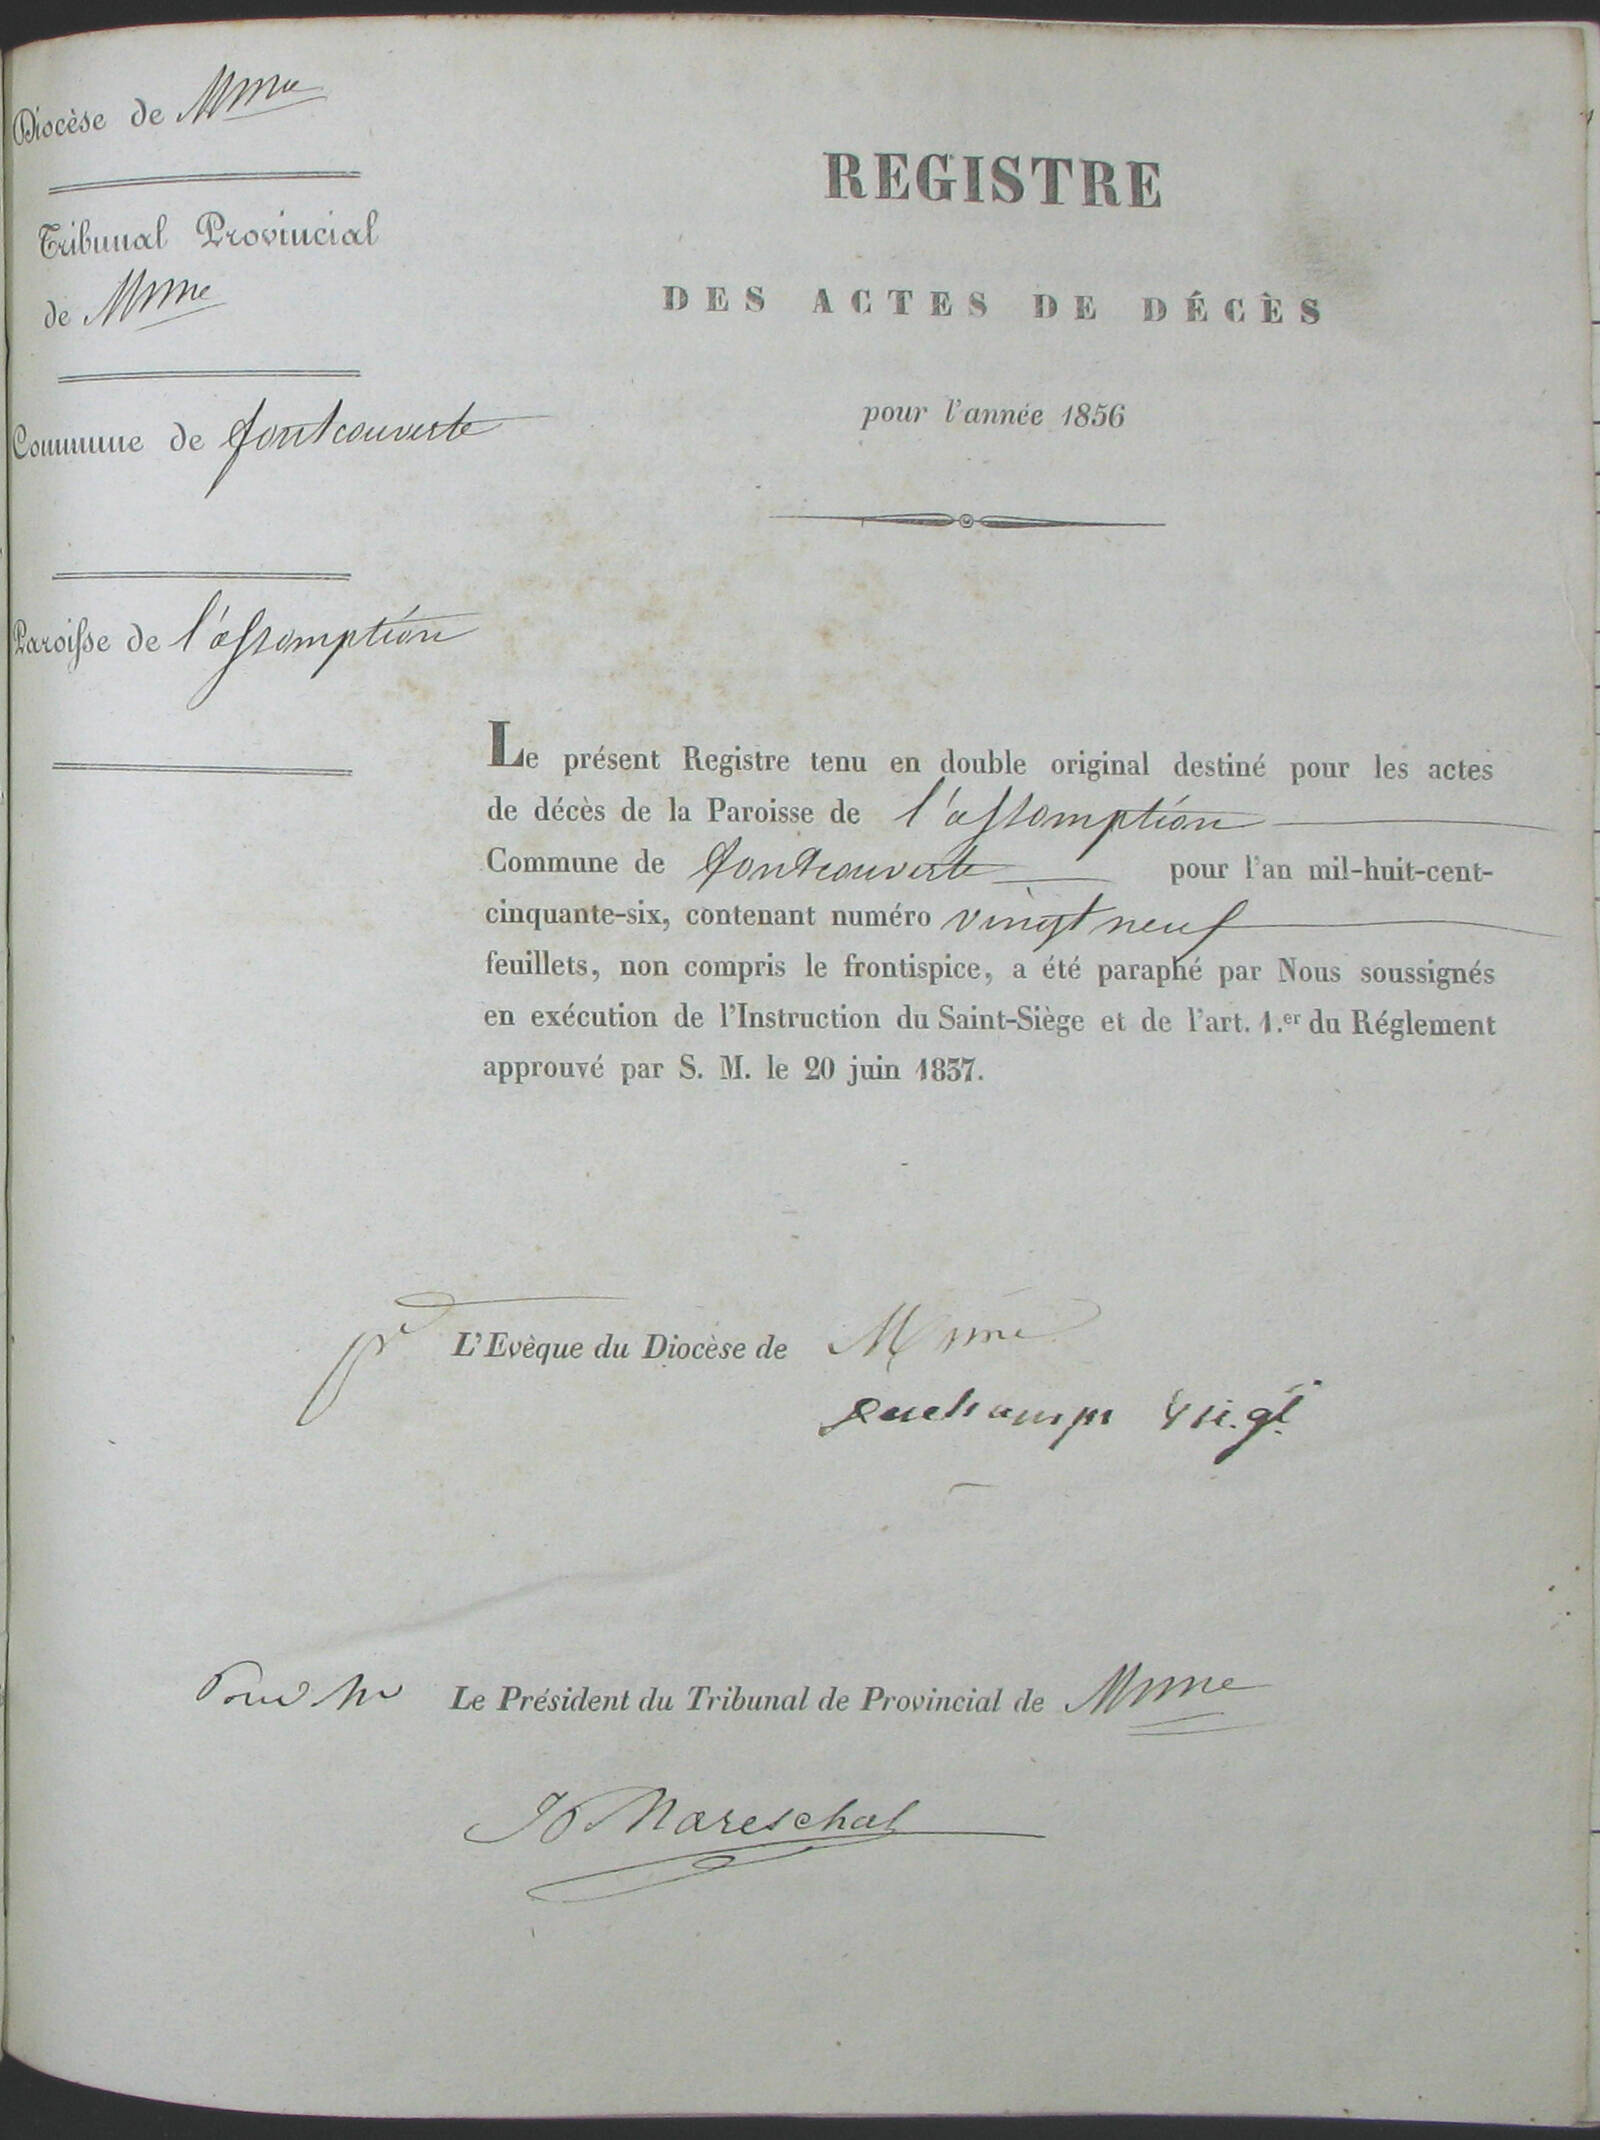 Diocèse de Mme
Tribunal Provincial
de Mme
Commune de fontcouverte
Paroisse de l'assomption
REGISTRE
DES ACTES DE DÉCÈS
pour l'année 1856
Le présent Registre tenu en double original destiné pour les actes
de décès de la Paroisse de l'assomption
Commune de fontcouverte pour l'an mil-huit-cent-
cinquante-six, contenant numéro vingt neuf
feuillets, non compris le frontispice, a été paraphé par Nous soussignés
en exécution de l'Instruction du Saint-Siège et de l'art. 1.er du Réglement
approuvé par S. M. le 20 juin 1837.
pr L'Evèque du Diocèse de Mme
Duchamps V ic. gl.
Pour Mr Le Président du Tribunal de Provincial de Mme
Mareschal